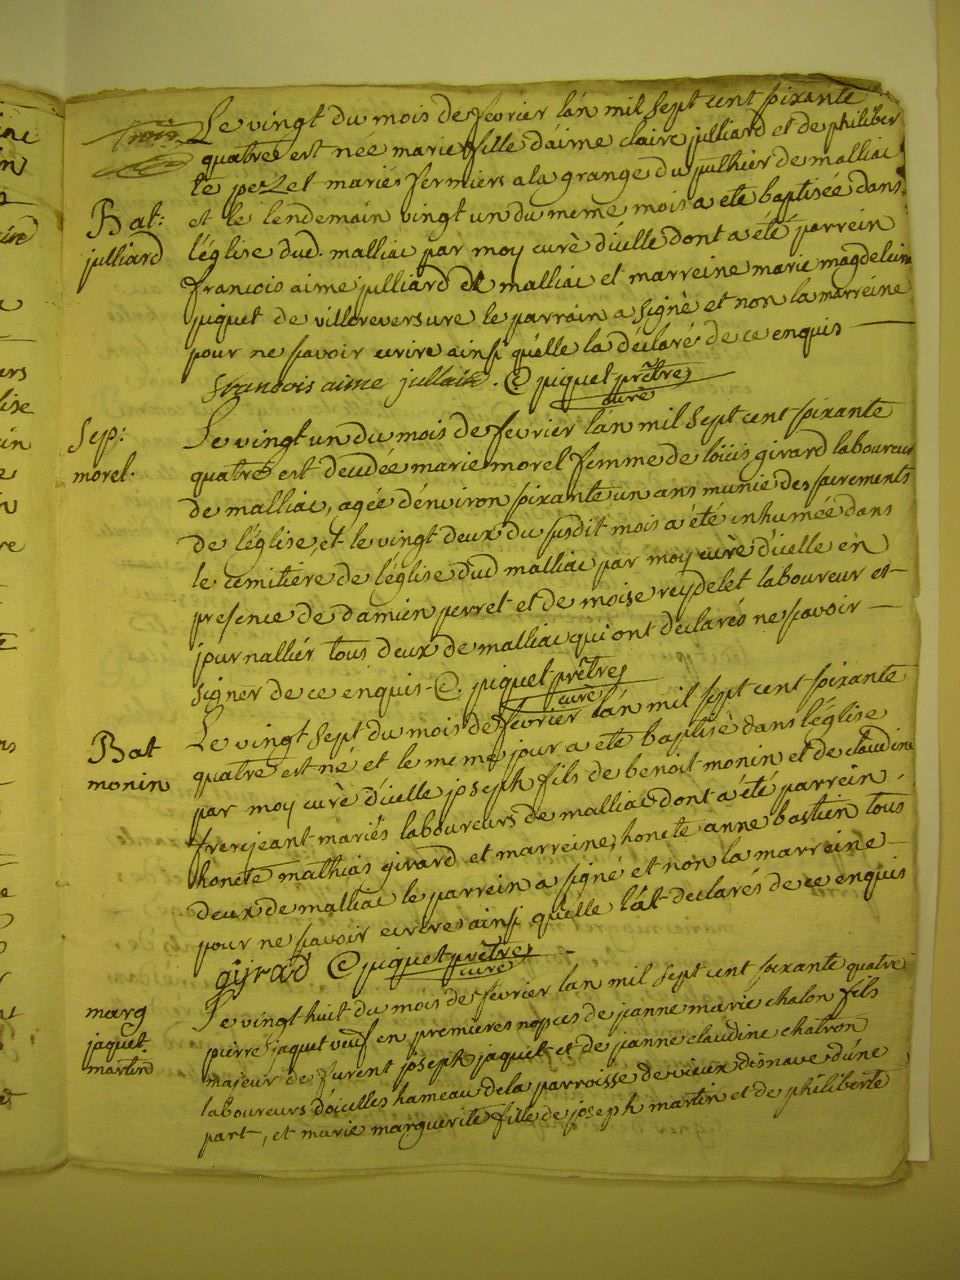 trois
Le vingt du mois de fevrier lan mil sept cent soixante
quatre est née marie fille d'aime claire julliard et de philiber
te pezet mariés fermiers a la grange du julhier de malliac
Bat: julliard
et le lendemain vingt un du meme mois a eté baptisée dans
l'église dud. malliac par moy curè d'icelle dont a été parrein
francois aime julliard de malliac et marreine marie magdeleine
piquet de villereversure le parrain a signè et non la marreine
pour ne savoir ecrire ainsi qu'elle la déclaré de ce enquis
francois aime julliard. C piquet prêtre
curè
Sep: morel.
Le vingt un du mois de fevrier lán mil sept cent soixante
quatre est decedée marie morel femme de loüis girard laboureur
de malliac, agée d'environ soixante un ans munie des sacrements
de l'église, et le vingt deux du susdit mois a été inhumée dans
le cemitière de l'église dud malliac par moy curè d'icelle en
presence de damien perret et de moise reydelet laboureur et
journallier tous deux de malliac qui ont déclarés ne savoir
signer de ce enquis. C. piquet prêtre
curè
Bat monin
Le vingt sept du mois de fevrier lán mil sept cent soixante
quatre est né et le meme jour a eté baptisè dans l'église
par moy curè d'icelle joseph fils de benoit monin et de claudine
frerejeant mariés laboureurs de malliac dont a été parrein
honete mathias girard et marreine honete anne bastien tous
deux de malliac le parrein a signé et non la marreine
pour ne savoir ecrire ainsi qu'elle l'at declarés de ce enquis
girard C piquet prêtre
curè
marg jaquet martin
Le vingt huit du mois de fevrier lan mil sept cent soixante quatre
pierre jaquet veuf en premieres nopces de janne marie chalon fils
majeur de furent joseph jaquet et de janne claudine chatron
laboureurs d'oicelles hameau de la parroisse de vieux disnave d'úne
part, et marie marguerite fille de joseph martin et de philiberte